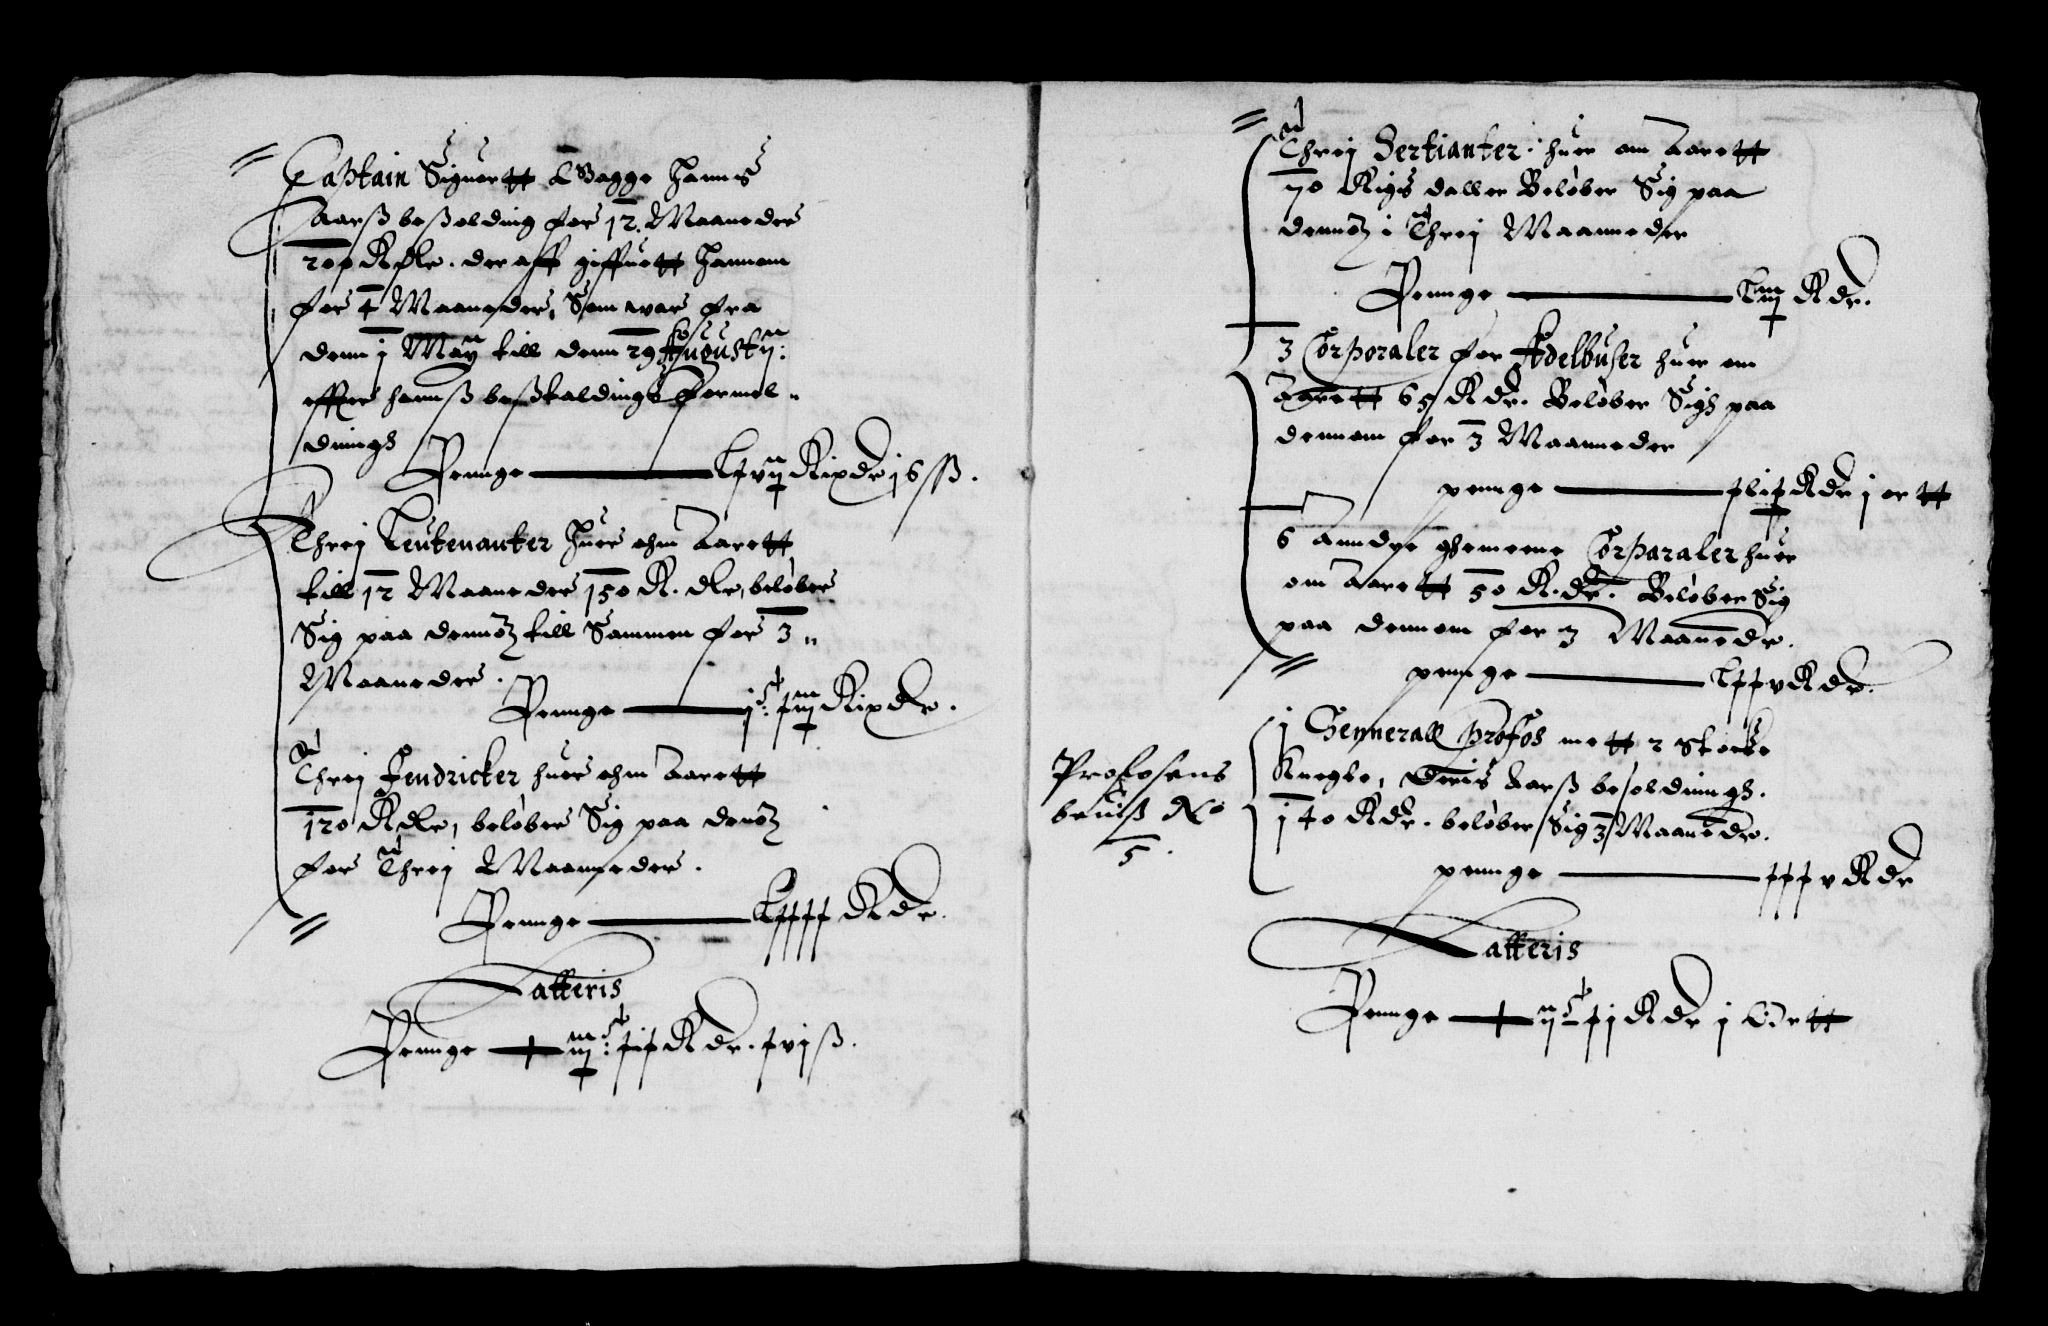 Captain Siguertt Bagge Hannis
Aarsß besolding for 12. Maaneder
200 R dlr. der aff giffuett Hannom
for 4 Maaneder, Som war fra
denn j Maÿ till denn 29 Augustij:
effter hannß beßtaldings formel-
dinngs
Pennge ——— Lxvij Rixdr 16 sß.
Threj Leutenanter Huer ehm Aarett
till 12 Maaneder 150 R. dlr, beløber
Sig paa dennom till Sammen for 3
Maaneder.
Pennge ——— jC: xiij Rixdr.
Threj Fendricker huer ehm Aarett
120 R dlr, beløber Sig paa denom
for Threj Maaneder.
Pennge ——— Lxxxx R dr.
Latteris
Pennge — iijC: xix R dr. xvj ß.
Threj Sertianter huer om Aarett
70 Rigs daller Beløber Sig paa
dennom i Threj Maanneder
Pennge ——— Liij R dr.
3 Corporaler for Adelbuser huer om
Aarett 65 R dr. Beløber Sigh paa
dennom for 3 Maanneder
pennge ——— xlix R dr j ortt
6 Anndre ghemeene Corparaler huer
om Aarett 50 R. dr. Beløber Sig
paa dennom for 3 Maanedr.
pennge ——— Lxxv R dr.
Profosens
beuiß No
5.
j Gennerall Profos mett 2 Stocke
Knegte, Deris Aarß besoldinngh.
140 R dr. beløber Sig 3 Maanedr.
pennge ——— xxxv R dr
Latteris
Pennge — ijC xj R dr j Ortt